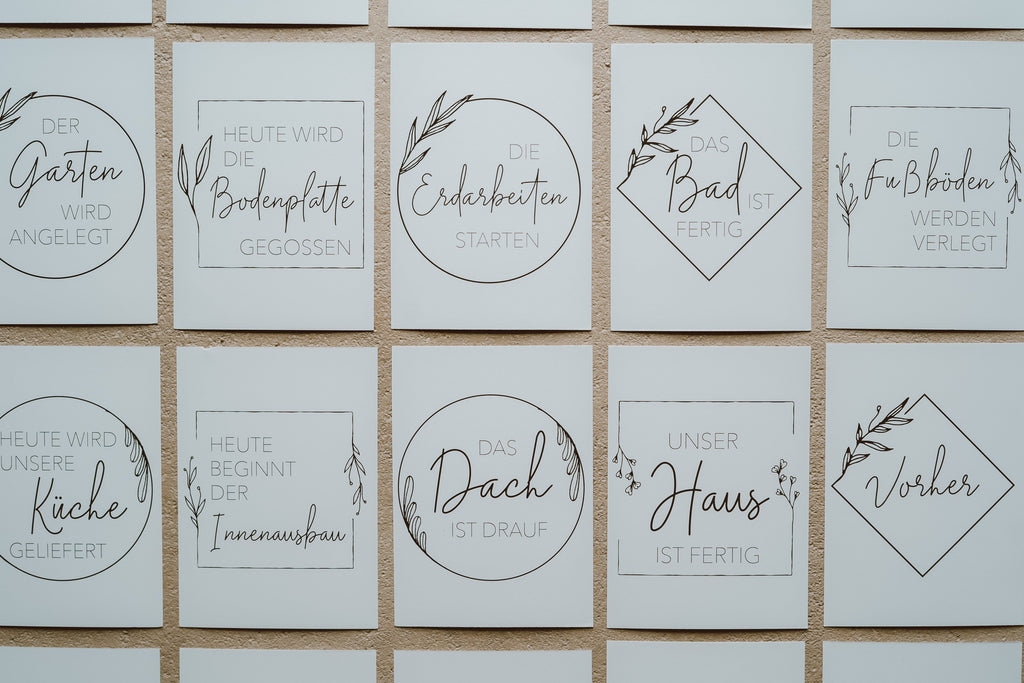 DER
Garten
WIRD
ANGELEGT
HEUTE WIRD
DIE
Bodenplatte
GEGOSSEN
DIE
Erdarbeiten
STARTEN
DAS
Bad
IST
FERTIG
DIE
Fußböden
WERDEN
VERLEGT
HEUTE WIRD
UNSERE
Küche
GELIEFERT
HEUTE
BEGINNT
DER
Innenausbau
DAS
Dach
IST DRAUF
UNSER
Haus
IST FERTIG
Vorher